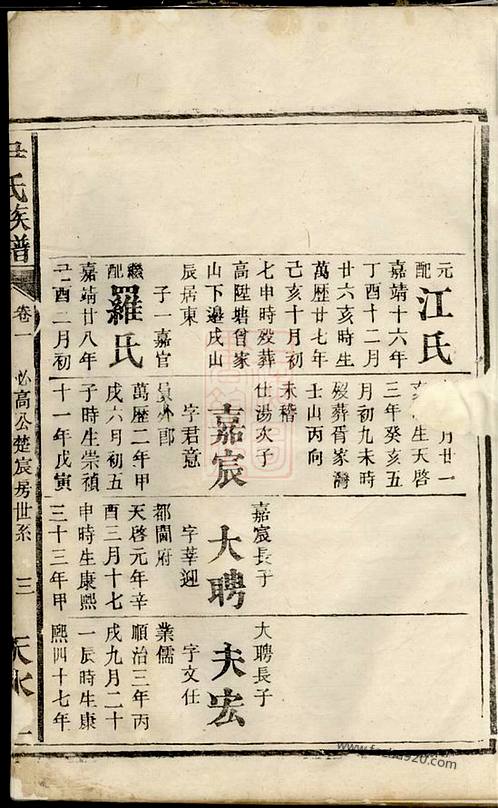 元配江氏
嘉靖十六年
丁酉十二月
廿六亥時生
萬歷廿七年
己亥十月初
七申時歿葬
高陞塘曾家
山下邊戌山
辰居東
子一嘉官
繼配羅氏
嘉靖廿八年
己酉二月初
月廿一
亥 生天啓
三年癸亥五
月初九未時
歿葬胥家灣
士山丙向
未稽
仕湯次子
嘉宸
字君意
員外郎
萬歷二年甲
戌六月初五
子時生崇禎
十一年戊寅
嘉宸長子
大聘
字莘迎
都閫府
天啓元年辛
酉三月十七
申時生康熙
三十三年甲
大聘長子
夫宏
字文仕
業儒
順治三年丙
戌九月二十
一辰時生康
熙四十七年
氏族譜
卷一
必高公楚宸房世系
三
天水
www.fozhu920.com